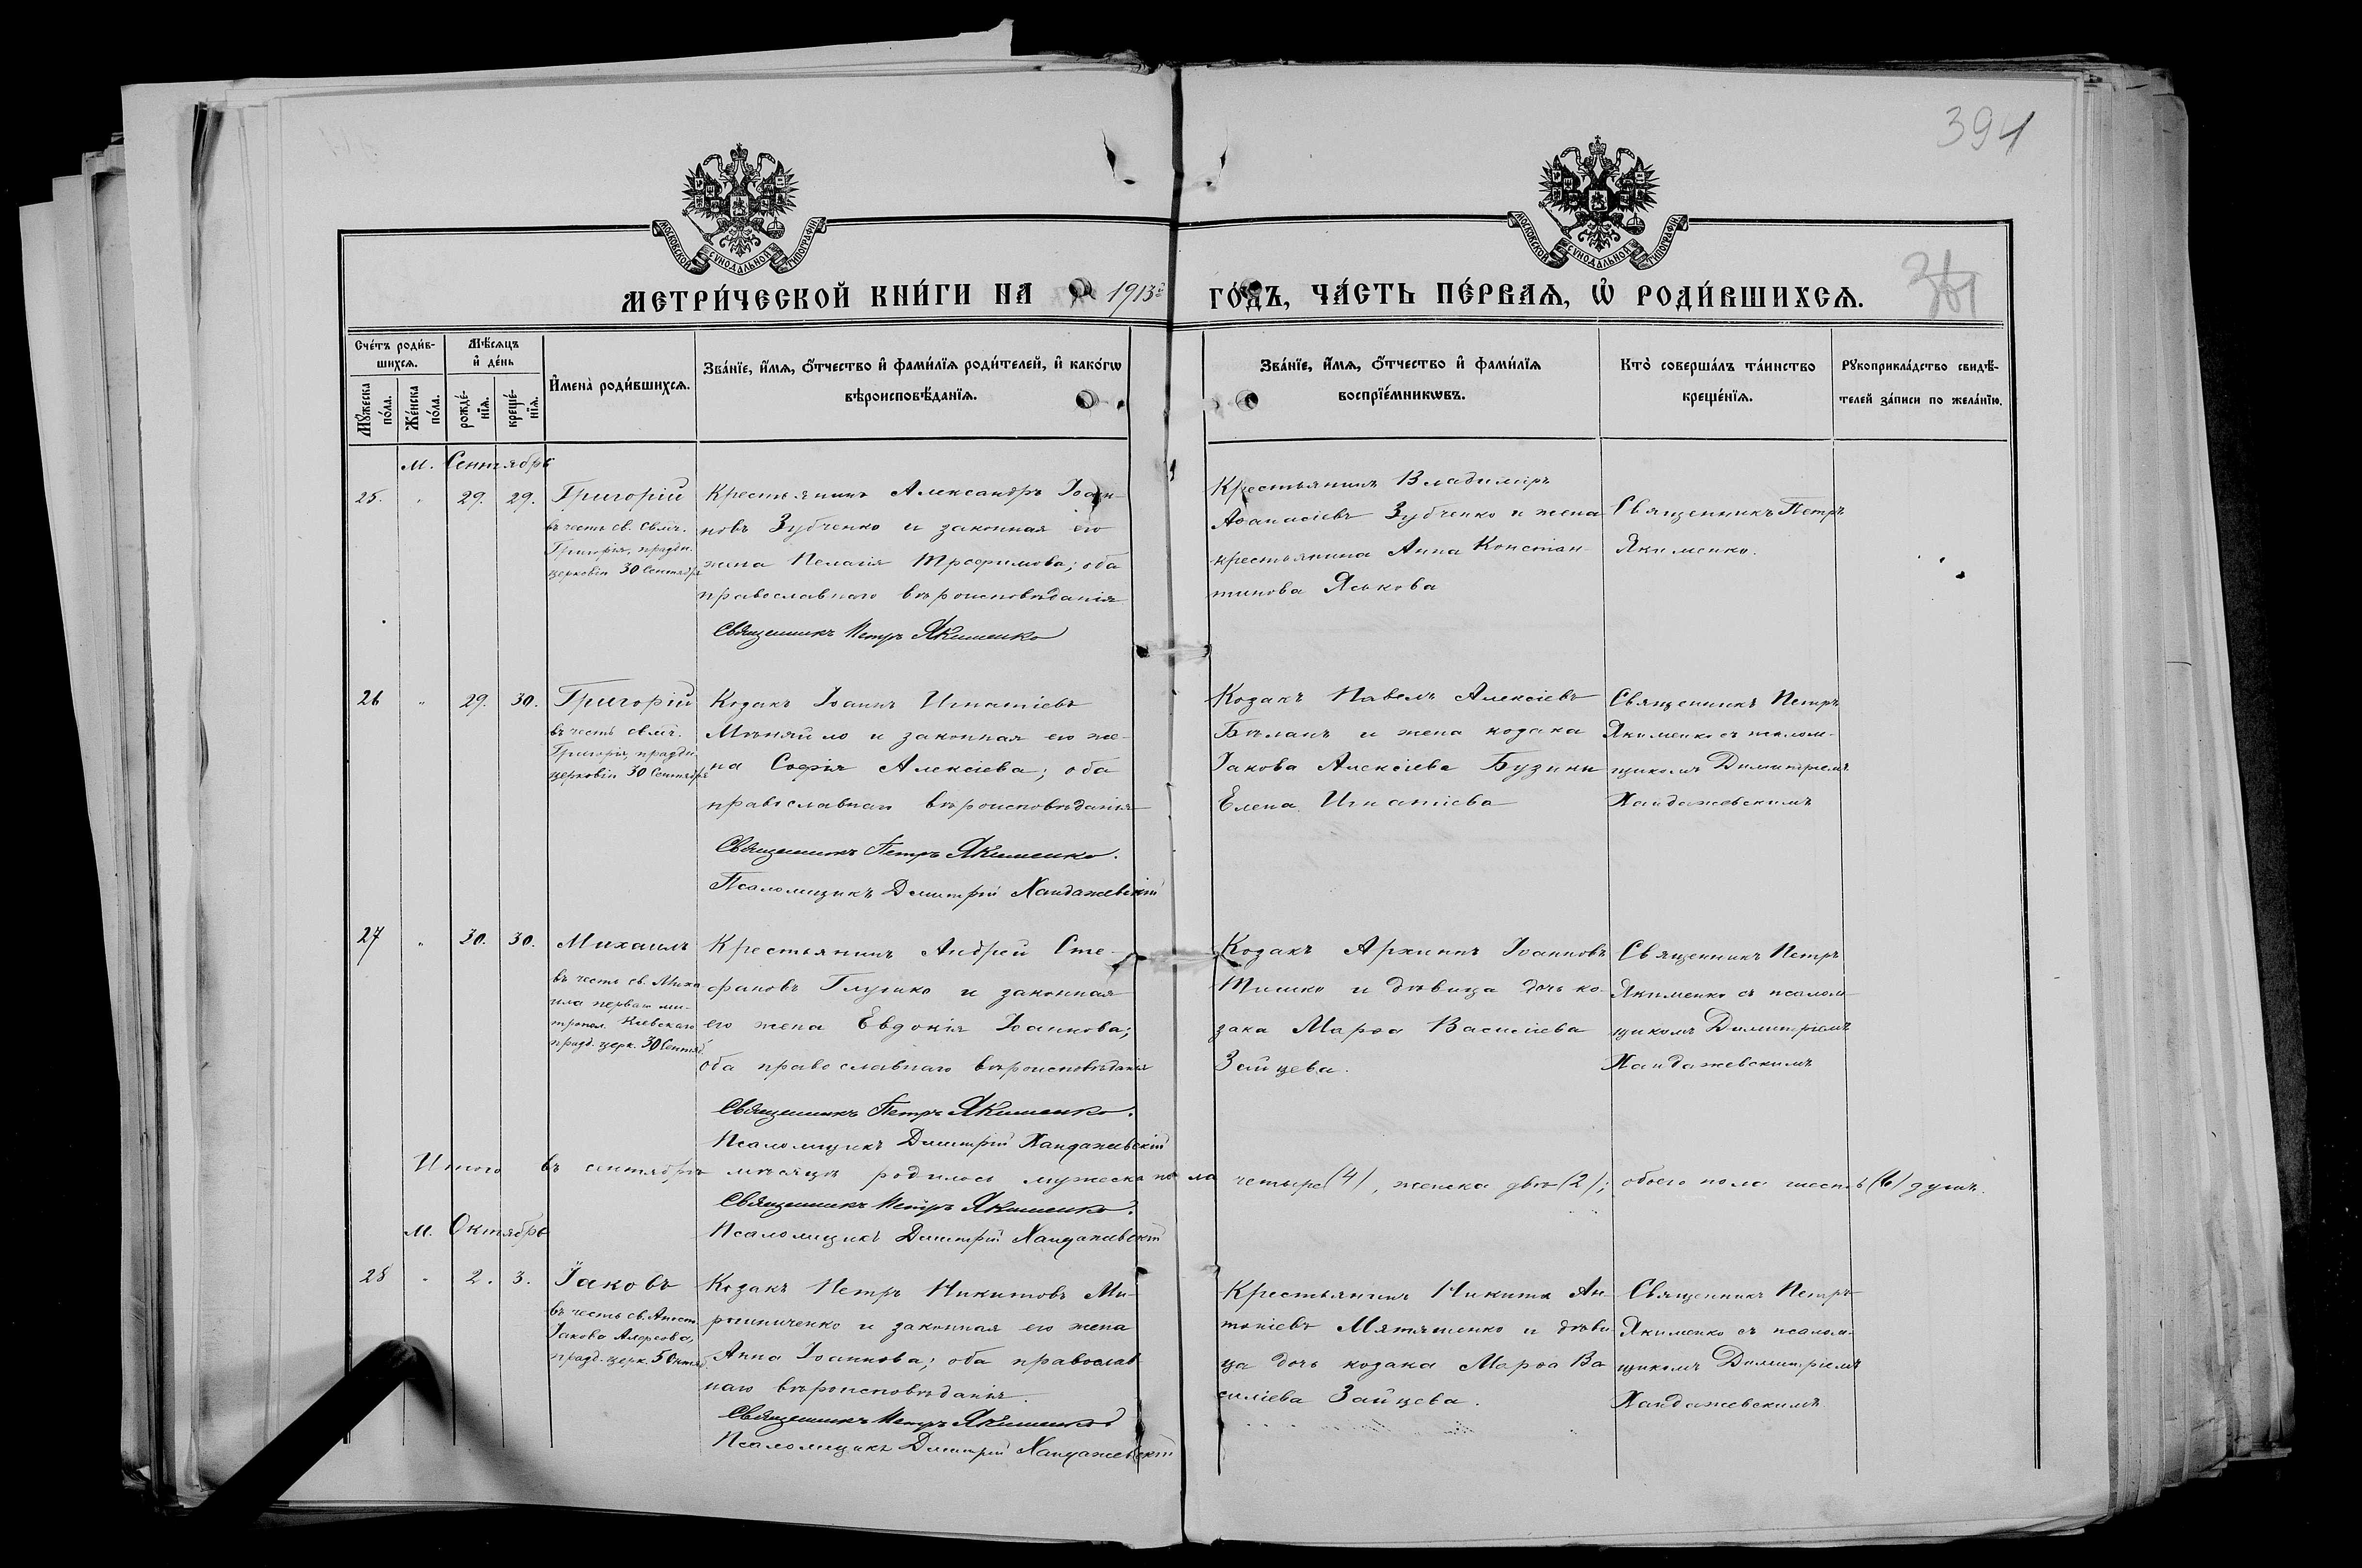 394
МОСКОВСКОЙ СѴНОДАЛЬНОЙ ТИПОГРАФІИ
МОСКОВСКОЙ СѴНОДАЛЬНОЙ ТИПОГРАФІИ
МЕТРИ́ЧЕСКОЙ КНИ́ГИ НА 1913 ГО́ДЪ, ЧА́СТЬ ПЕ́РВАѦ, Ѡ҆ РОДИ́ВШИХСѦ.
Сче́тъ роди́в-
шихсѧ.
Мꙋ́жеска
по́ла.
Же́нска
по́ла.
Мѣ́сѧцъ
и҆ де́нь
рожде́-
нїѧ.
креще́-
нїѧ.
И҆мена̀ роди́вшихсѧ.
Зва́нїе, и҆́мѧ, о҆́тчество и҆ фами́лїѧ роди́телей, и҆ како́гѡ
вѣроисповѣ́данїѧ.
Зва́нїе, и҆́мѧ, о҆́тчество и҆ фами́лїѧ
воспрїе́мникѡвъ.
Кто̀ соверша́лъ та́инство
креще́нїѧ.
Рꙋкоприкла́дство свидѣ́-
телей за́писи по жела́нїю.
м. Сентябрь
25. " 29. 29. Григорій
въ честь св. свмч.
Григорія, праздн.
церковію 30 Сентября
Крестьянинъ Александръ Іоан-
новъ Зубченко и законная его
жена Пелагія Трофимова; оба
православнаго вѣроисповѣданія
Священникъ Петръ Якименко
Крестьянинъ Владиміръ
Аѳанасіевъ Зубченко и жена
крестьянина Анна Констан-
тинова Яськова
Священникъ Петръ
Якименко.
26 " 29. 30. Григорій
въ честь свмч.
Григорія, праздн.
церковію 30 Сентября
Козакъ Іоаннъ Игнатіевъ
Мѣняйло и законная его же-
на Софія Алексіева; оба
православнаго вѣроисповѣданія
Священникъ Петръ Якименко.
Псаломщикъ Димитрій Хандажевскій
Козакъ Павелъ Алексіевъ
Бѣланъ и жена козака
Іакова Алексіева Бузины
Елена Игнатіева
Священникъ Петръ
Якименко съ псалом-
щикомъ Димитріемъ
Хандажевскимъ
27 " 30. 30. Михаилъ
въ честь св. Миха
ила перваго ми-
тропол. Кіевскаго
празд. церк. 30 Сентяб.
Крестьянинъ Андрей Сте-
фановъ Глушко и законная
его жена Евдокія Іоаннова;
оба православнаго вѣроисповѣданія
Священникъ Петръ Якименко.
Псаломщикъ Димитрій Хандажевскій
Козакъ Архиппъ Іоанновъ
Тишко и дѣвица дочь ко-
зака Марѳа Василіева
Зайцева.
Священникъ Петръ
Якименко съ псалом-
щикомъ Димитріемъ
Хандажевскимъ
Итого въ сентябрѣ мѣсяцѣ родилось мужеска пола четыре (4), женска двѣ (2); обоего пола шесть (6) душъ.
Священникъ Петръ Якименко.
Псаломщикъ Димитрій Хандажевскій
м. Октябрь
28 " 2. 3. Іаковъ
въ честь св. Апост.
Іакова Алфеова,
празд. церк. 9 Октяб.
Козакъ Петръ Никитовъ Ми-
рошниченко и законная его жена
Анна Іоаннова; оба православ-
наго вѣроисповѣданія.
Священникъ Петръ Якименко
Псаломщикъ Димитрій Хандажевскій
Крестьянинъ Никита Ан-
тоніевъ Мятященко и дѣви-
ца дочь козака Марѳа Ва-
силіева Зайцева.
Священникъ Петръ
Якименко съ псалом-
щикомъ Димитріемъ
Хандажевскимъ